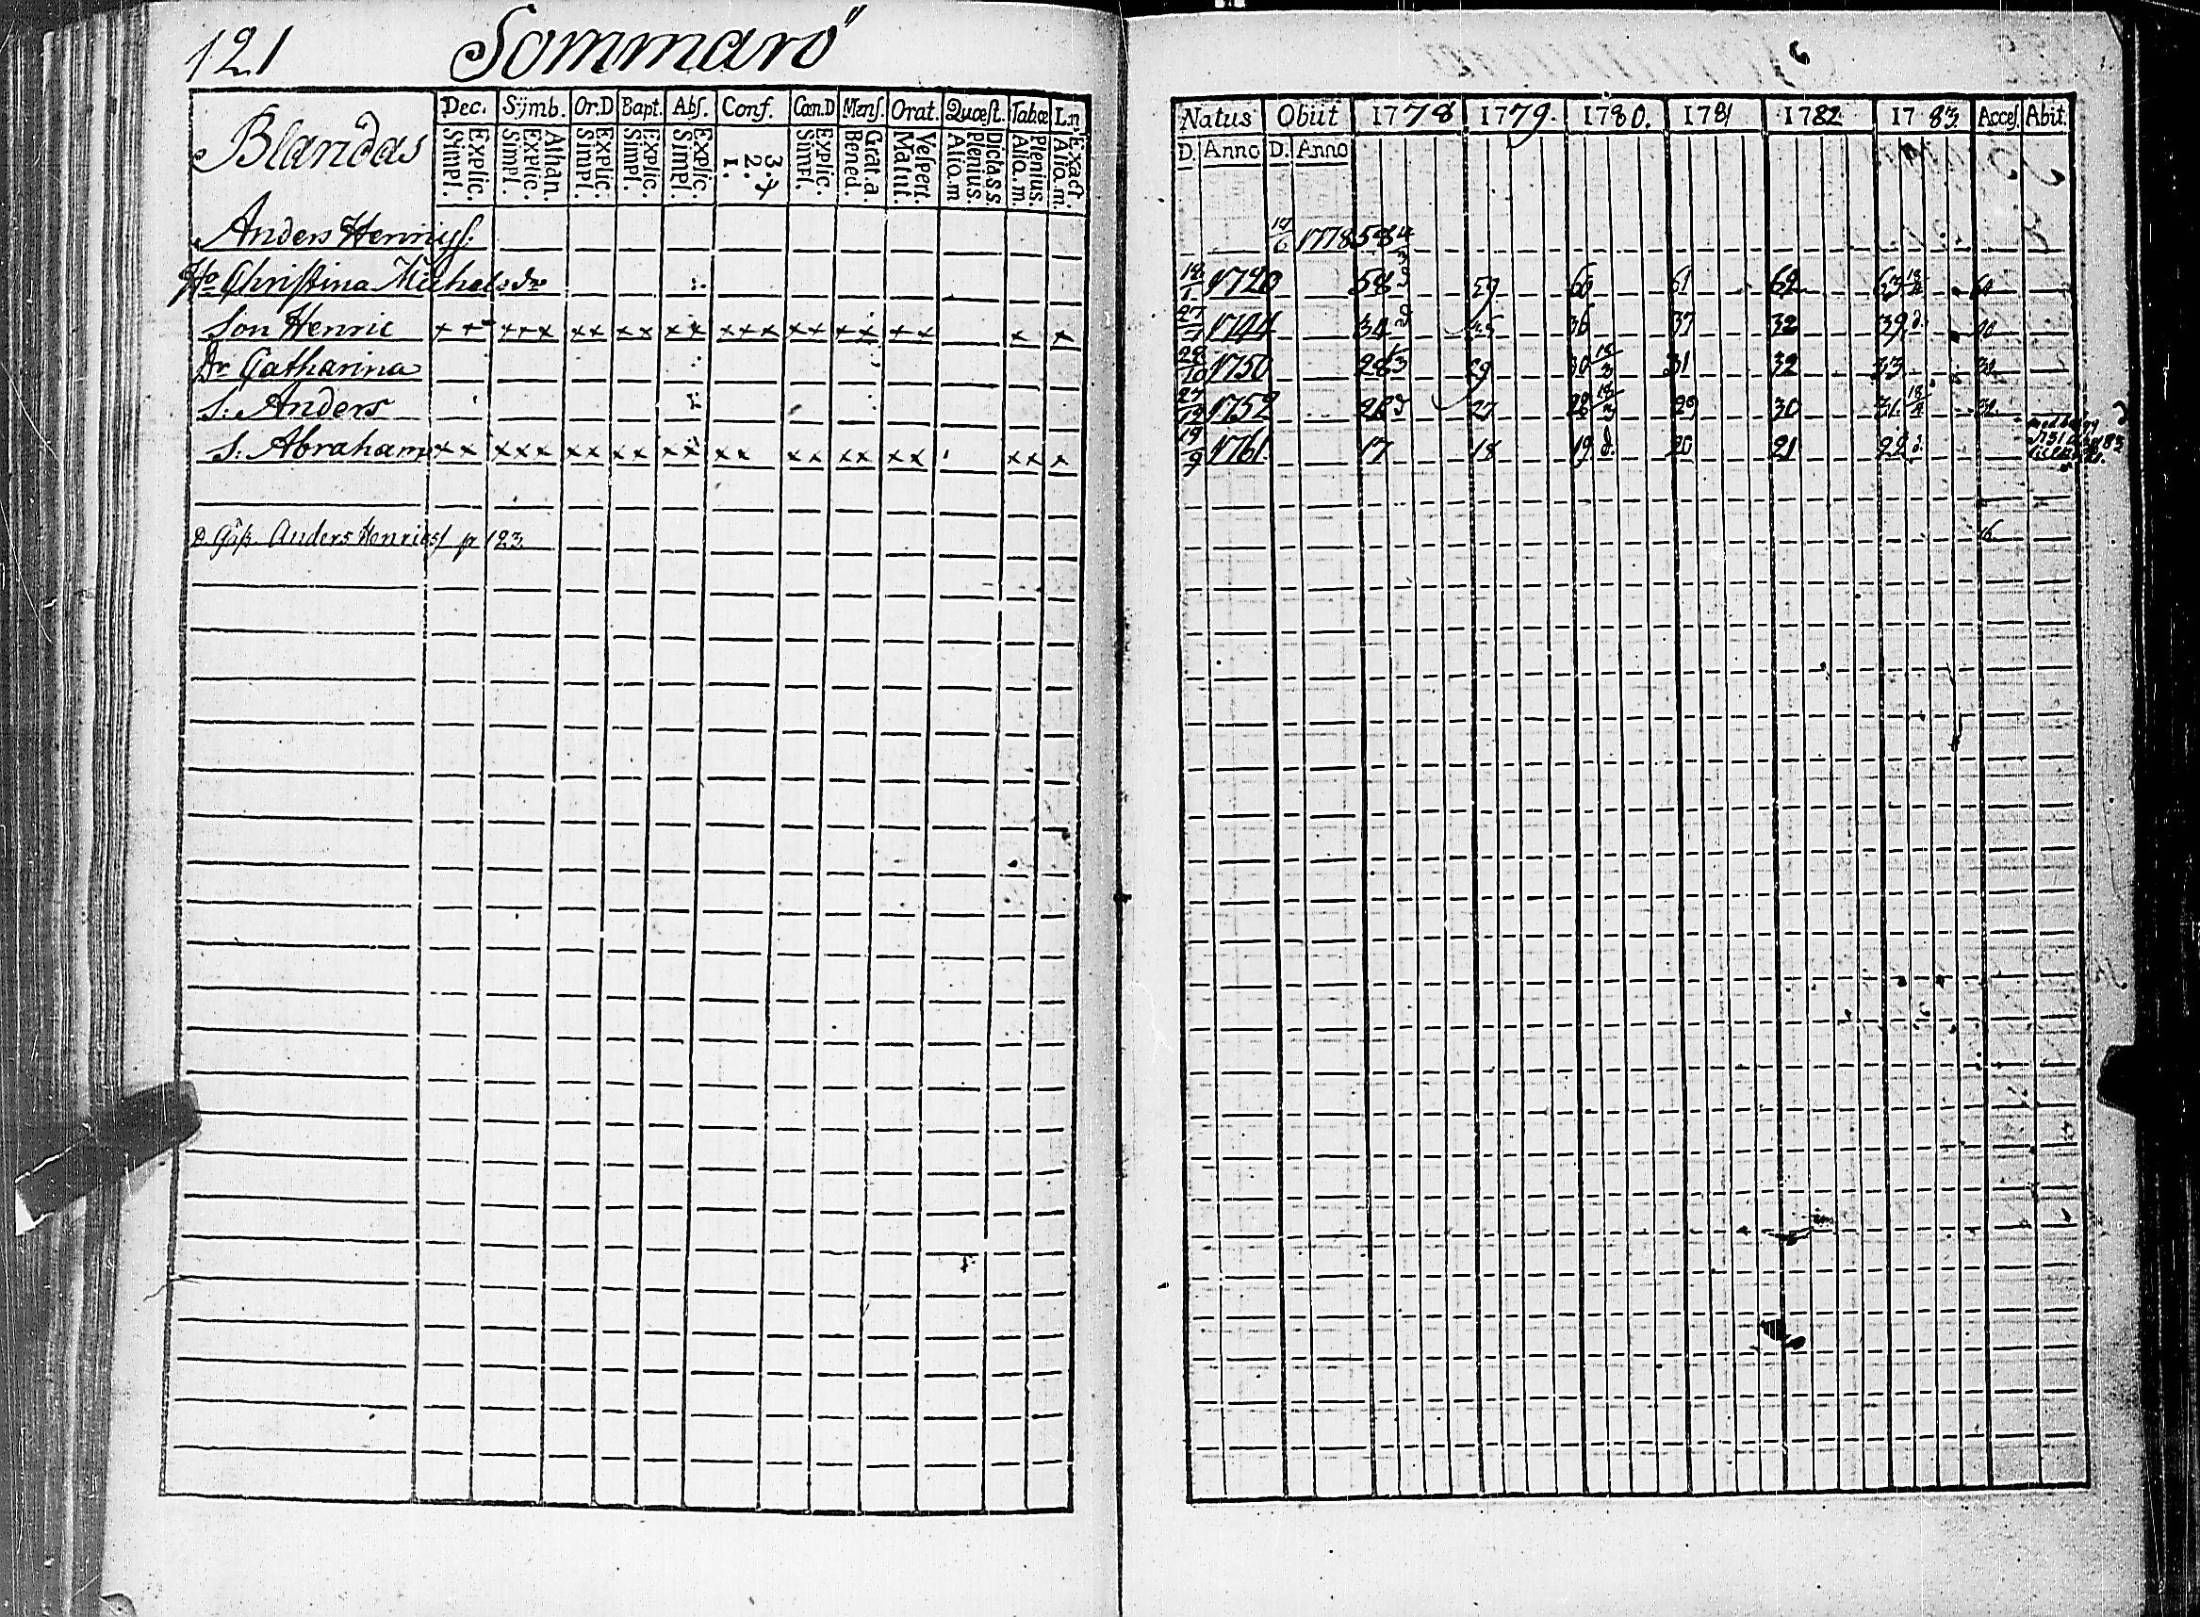 121 Sommarö
Dec. Symb. Or.D Bapt. Abs. Conf. Cœn.D Mens. Orat. Quæst. Tabœ L.n.
Blandas Simpl. Explic. Simpl. Explic. Athan. Simpl. Explic. Simpl. Explic. Simpl. Explic. 1. 2. 3. 4 Simpl. Explic. Bened. Grat.a. Matut. Vespert. Alio.m Plenius. Dicta s.s. Alio.m. Plenius. Alio.m. Exact.
Anders Henrijs:
Ho Christina Michels:dr
Son Henric + + + + x x x x x x x x x x x x x + + + + x x
Dr Catharina
S: Anders
S. Abraham x x x x x x x x x x x x x x x x x x x x x x
d. Gåss. Anders Henricss p 123.
Natus Obiit 1778 1779. 1780. 1781 1782 1783. Acces. Abit.
D. Anno D. Anno
14/6 1778 58
1720 58 59 60 61 62 63
27 1744 34 35 36 37 32 39
28/10 1750 28 29 30 31 32 33
27/12 1752 26 27 28 29 30 31
19/9 1761 17 18 19 20 21 22